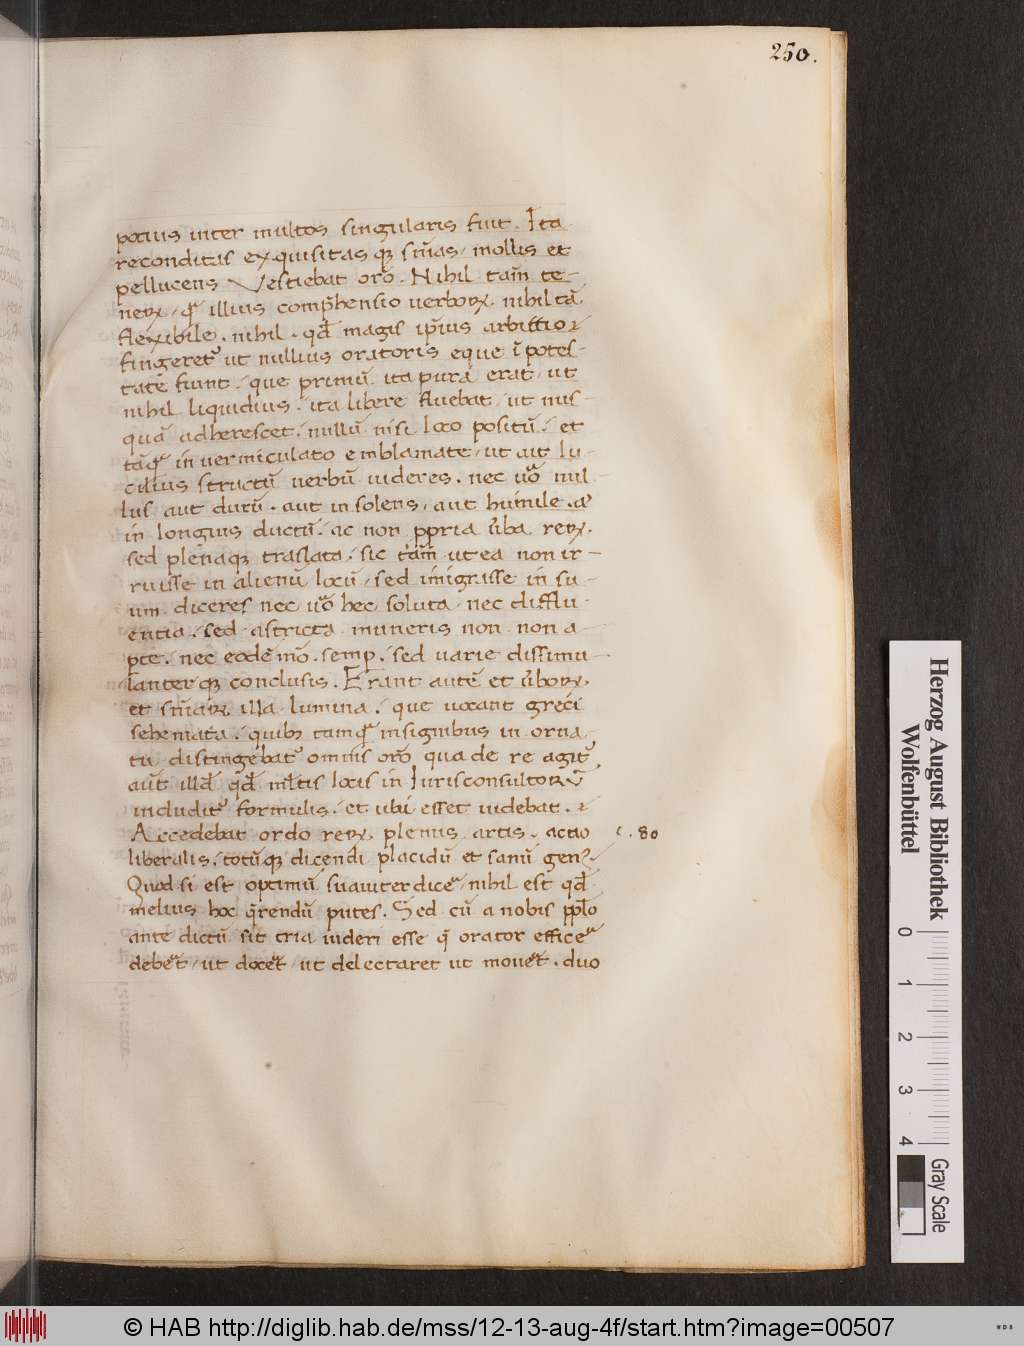 250.
potius inter multos singularis fuit. Ita
reconditas exquisitasq; sñias, mollis et
pellucens Vestiebat orõ. Nihil tam̃ te-
neꝝ, qͣ illius comp̃hensio uerboꝝ. nihil tã
flexibile. nihil. qd̃ magis ip̃ius arbittio
fingeret᷑ ut nullius oratoris eque ĩ potes-
tatẽ fiunt. que primũ ita pura erat, ut
nihil liquidius. ita libere fluebat ut nus-
quã adherescet. nullũ nisi loco positũ. et
tãqͣ in uermiculato emblamate, ut ait lu-
cilius structũ uerbũ uideres. nec uo͛ nul
lus aut durũ. aut in solens, aut humile. aᵗ
in longius ductũ. ac non ꝓpria ũba reꝝ.
sed plenaq; traslata. sic tam̃ ut ea non ir-
ruisse in alienũ locũ, sed im̃igrasse in su-
um diceres nec uo͛ hec soluta nec difflu-
entia. sed astricta muneris non non a-
pte. nec eodẽ mõ. semp̱. sed uarie dissimu-
lanterq; conclusis. Erant autẽ et ũboꝝ.
et sñiaꝝ illa lumina. que uocant greci
sehemata. quibꝫ tamqͣ insignibus in orna-
tu distingebat᷑ omnis orõ qua de re agit᷑
aut̃ illd̃ qd̃ ml̃tis locis in Iurisconsultoꝝ
includit᷑ formulis. et ubi esset uidebat.
Accedebat ordo reꝝ plenus artis. actio
c. 80
liberalis. totũq; dicendi placidũ et sanũ gen᷒.
Quod si est optimũ suauiter dice͛, nihil est qd̃
melius hoc q̃rendũ putes. Sed cũ a nobis pp̃lo
ante dictũ sit tria uideri esse q̃ orator effice͛
debet͛, ut docet͛, ut delectaret ut mouet͛. duo
Herzog August Bibliothek
Wolfenbüttel
0
1
2
3
4
Gray Scale
© HAB http://diglib.hab.de/mss/12-13-aug-4f/start.htm?image=00507